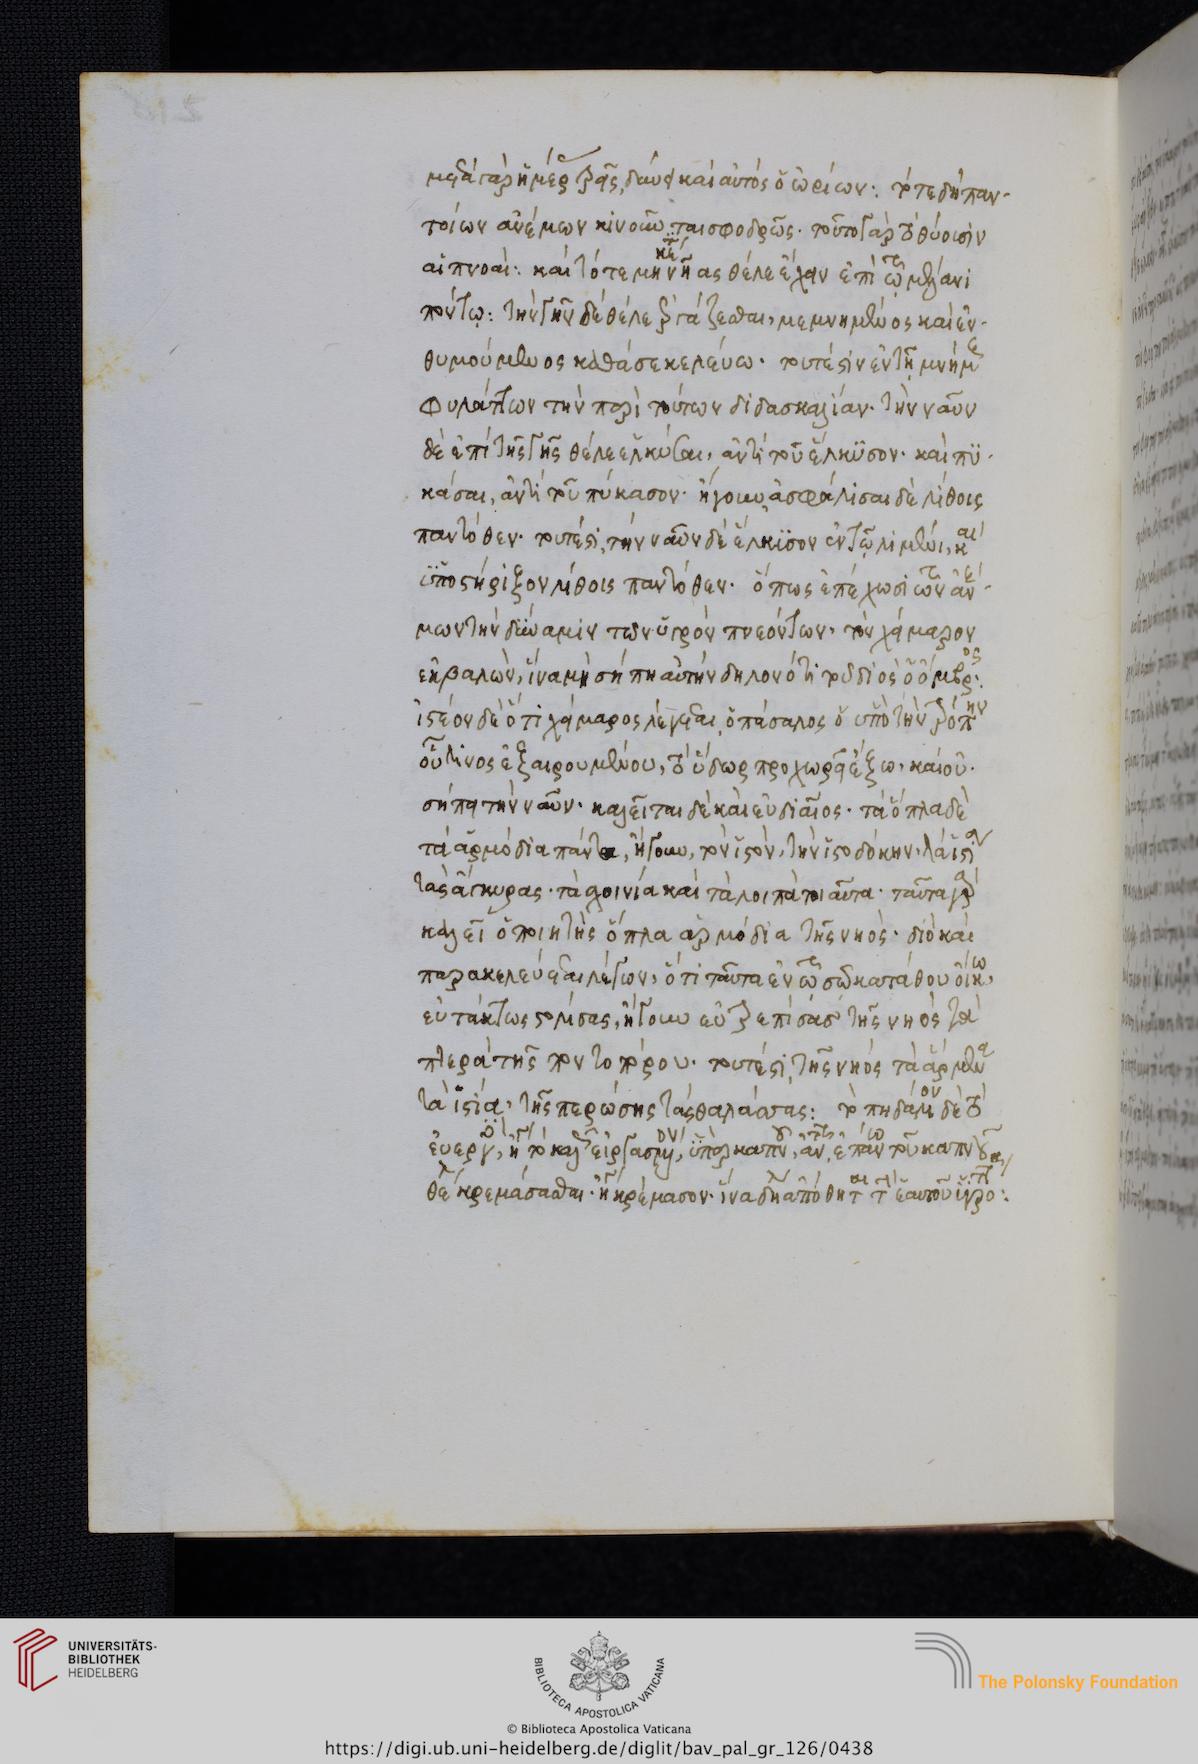 μετὰ γὰρ ἡμέρας τρεῖς, δύνει καὶ αὐτὸς ὁ ὠρίων: τότε δὴ παν-
τοίων ἀνέμων κινοῦνται σφοδρῶς. τοῦτο γὰρ τὸ θύουσιν
αἱ πνοαί: καὶ τότε μηκέτι νῆας θέλε ἔχειν ἐπὶ τῷ μέλανι
πόντῳ: τὴν γῆν δὲ θέλε ἐργάζεσθαι, μεμνημένος καὶ ἐν-
θυμούμενος καθά σε κελεύω. τουτέστιν ἐν τῇ μνήμῃ
φυλάττων τὴν περὶ τούτων διδασκαλίαν. τὴν ναῦν
δὲ ἐπὶ τῆς γῆς θέλε ἑλκύσαι, ἀντὶ τοῦ ἕλκυσον. καὶ πυ-
κάσαι, ἀντὶ τοῦ πύκασον. ἤγουν ἀσφάλισαι δὲ λίθοις
παντόθεν. τουτέστι, τὴν ναῦν δὲ ἕλκυσον ἐν τῷ λιμένι, καὶ
ὑποστήριξον λίθοις παντόθεν. ὅπως ἐπέχωσι τῶν ἀνέ-
μων τὴν δύναμιν τῶν ὑγρὸν πνεόντων, τὸν χάμαρον
ἐκβαλὼν, ἵνα μὴ σήπῃ αὐτὴν δηλονότι τοῦ διὸς ὁ ὄμβρος:
ἰστέον δὲ ὅτι χάμαρος λέγεται, ὁ πάσαλος ὁ ὑπὸ τὴν τρόπην
οὗτινος ἐξαιρουμένου, τὸ ὕδωρ προχωρεῖ ἔξω, καὶ οὐ
σήπει τὴν ναῦν. καλεῖται δὲ καὶ εὐδιαῖος. τὰ ὅπλα δὲ
τὰ ἁρμόδια πάντα, ἤγουν, τὸν ἱστὸν, τὴν ἱστοδόκην, τὰ ἱστία
τὰς ἀγκύρας. τὰ σχοινία καὶ τὰ λοιπὰ τοιαῦτα. ταῦτα γὰρ
καλεῖ ὁ ποιητὴς ὅπλα ἁρμόδια τῆς νηός. διὸ καὶ
παρακελεύεται λέγων, ὅτι ταῦτα ἐν τῷ σῷ κατάθου οἴκῳ,
εὐτάκτως στολίσας, ἤγουν εὖ ἐπιστάσας τῆς νηὸς τὰ
πτερὰ τῆς ποντοπόρου. τουτέστι, τῆς νηὸς τὰ ἄρμενα
τὰ ἱστία, τῆς περώσης τὰς θαλάσσας: τὸ πηδάλιον δὲ τὸ
εὐεργὸν, ἢ τὸ καλῶς εἰργασμένον, ὑπὲρ καπνοῦ, ἀντὶ ἐπάνω τοῦ καπνοῦ
θέλε κρεμάσασθαι. ἢ κρέμασον. ἵνα δηλαδὴ ἀπόθηται τὴν ἑαυτοῦ ὑγρότητα:
UNIVERSITÄTS-
BIBLIOTHEK
HEIDELBERG
BIBLIOTECA APOSTOLICA VATICANA
The Polonsky Foundation
© Biblioteca Apostolica Vaticana
https://digi.ub.uni-heidelberg.de/diglit/bav_pal_gr_126/0438